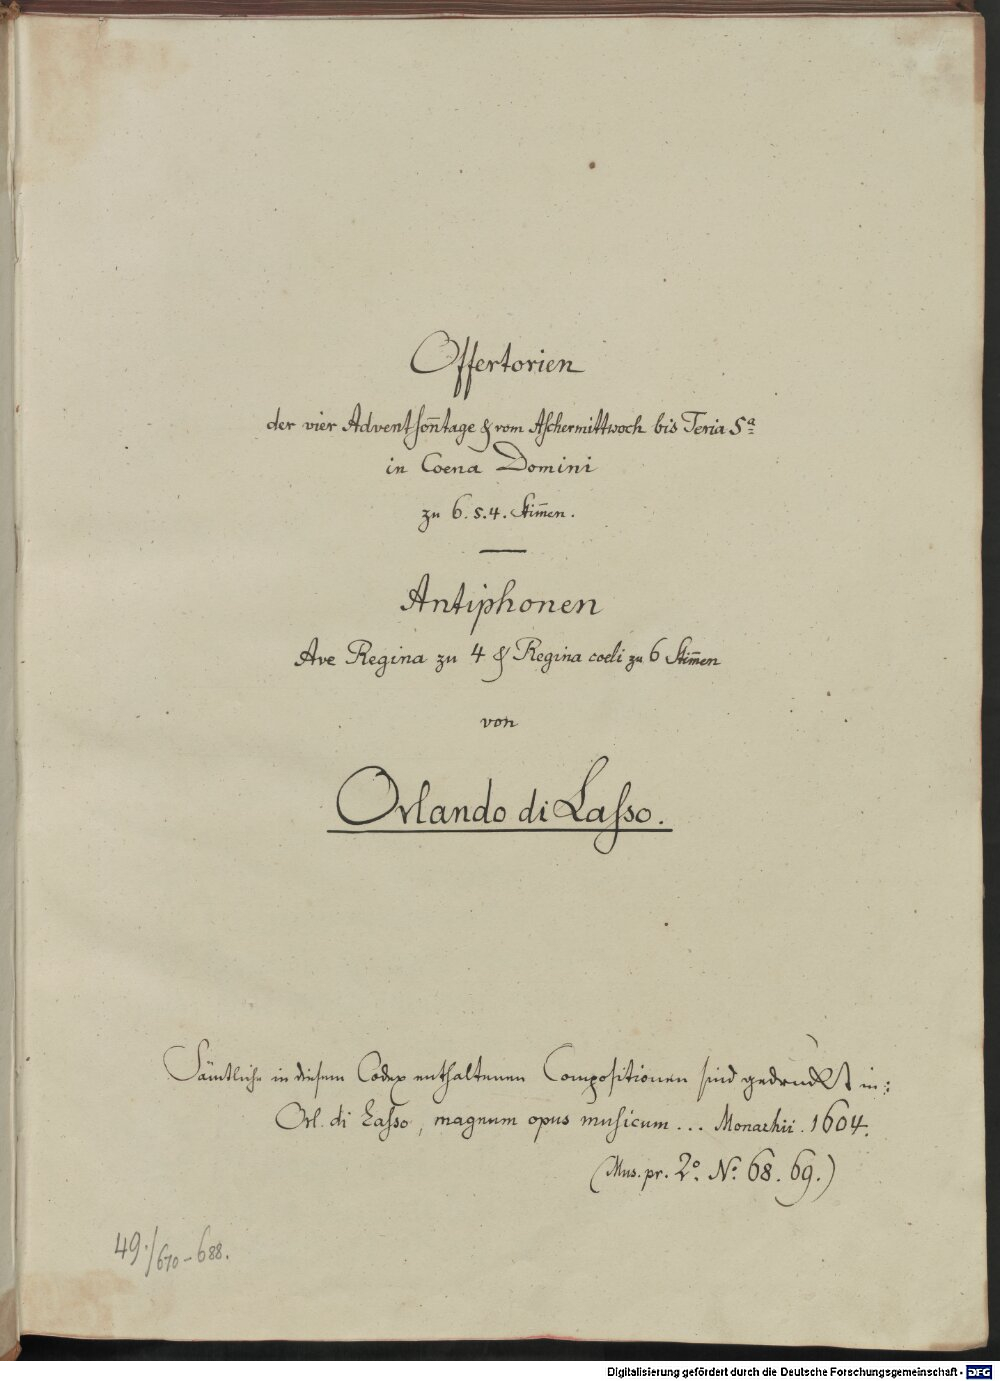 Offertorien
der vier Adventson̄tage & vom Aschermittwoch bis Feria 5ª
in Coena Domini
zu 6. 5. 4. Stim̄en.
Antiphonen
Ave Regina zu 4 & Regina coeli zu 6 Stim̄en
von
Orlando di Lasso.
Sämtliche in diesem Codex enthaltenen Compositionen sind gedruckt in:
Orl. di Lasso, magnum opus musicum... Monachii. 1604.
(Mus. pr. 2º. Nº. 68. 69.)
49./670-688.
Digitalisierung gefördert durch die Deutsche Forschungsgemeinschaft - DFG